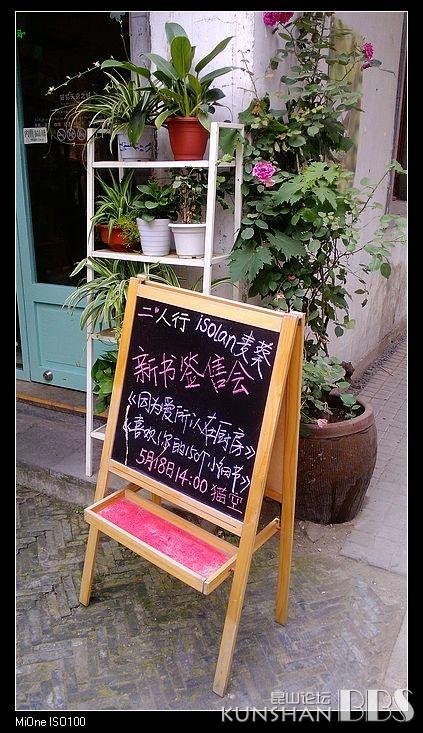 二人行 isolan麦葵
新书签售会
《因为爱所以在厨房》
《喜欢你的150个小细节》
5月18日14:00 猫空
昆山论坛
KUNSHAN BBS
MiOne ISO100